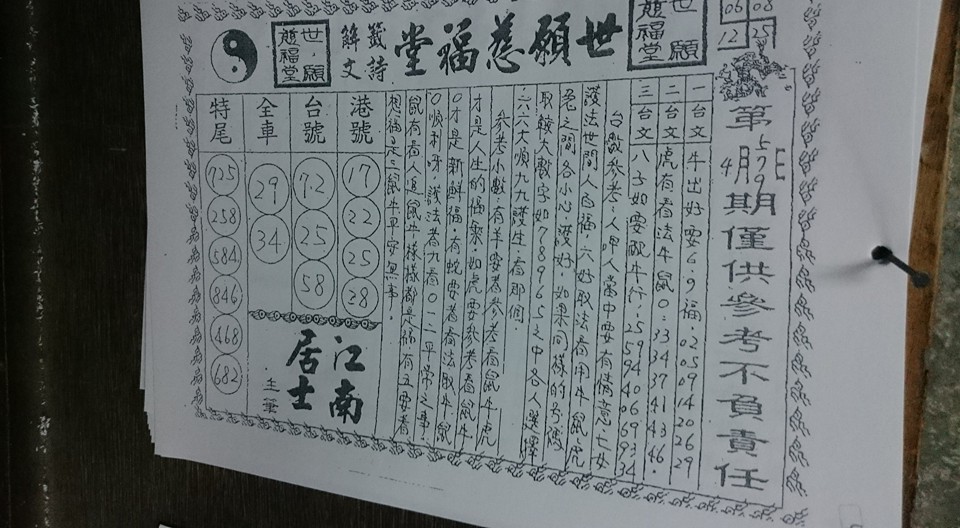 世願慈福堂
籤詩
解文
世願
慈福堂
世願
慈福堂
06 08
12 25
第 期僅供參考不負責任
4月5日
79
一台文 牛出好要6.9福.02 05 09 14 20 26 29
二台文 虎有看法牛鼠0:33 34 37 41 43 46.
三台文 八子如要配牛行.25 59 40 06 69 93 34
台數參考:人呷人當中要有情意七女
護法世間人自福.六好取法看用牛鼠虎
兔之間各小心護好.如果同樣的
取較大數字如789665之中各人選擇
.六六大順九九護生.看那個.
參考小數.有羊要者參考看鼠牛虎
才是人生的福樂.如虎要參考看鼠牛
0才是新鮮福.有蛇要者看法取牛.鼠
0順利呀.護法者九看0一二平常之事.
鼠有看人進鼠牛樣樣都是福有五要看
想福是二鼠牛平安無事.
港號
17
22
25
28
台號
72
25
58
全車
29
34
特尾
725
258
584
846
468
682
江南
居士
主筆